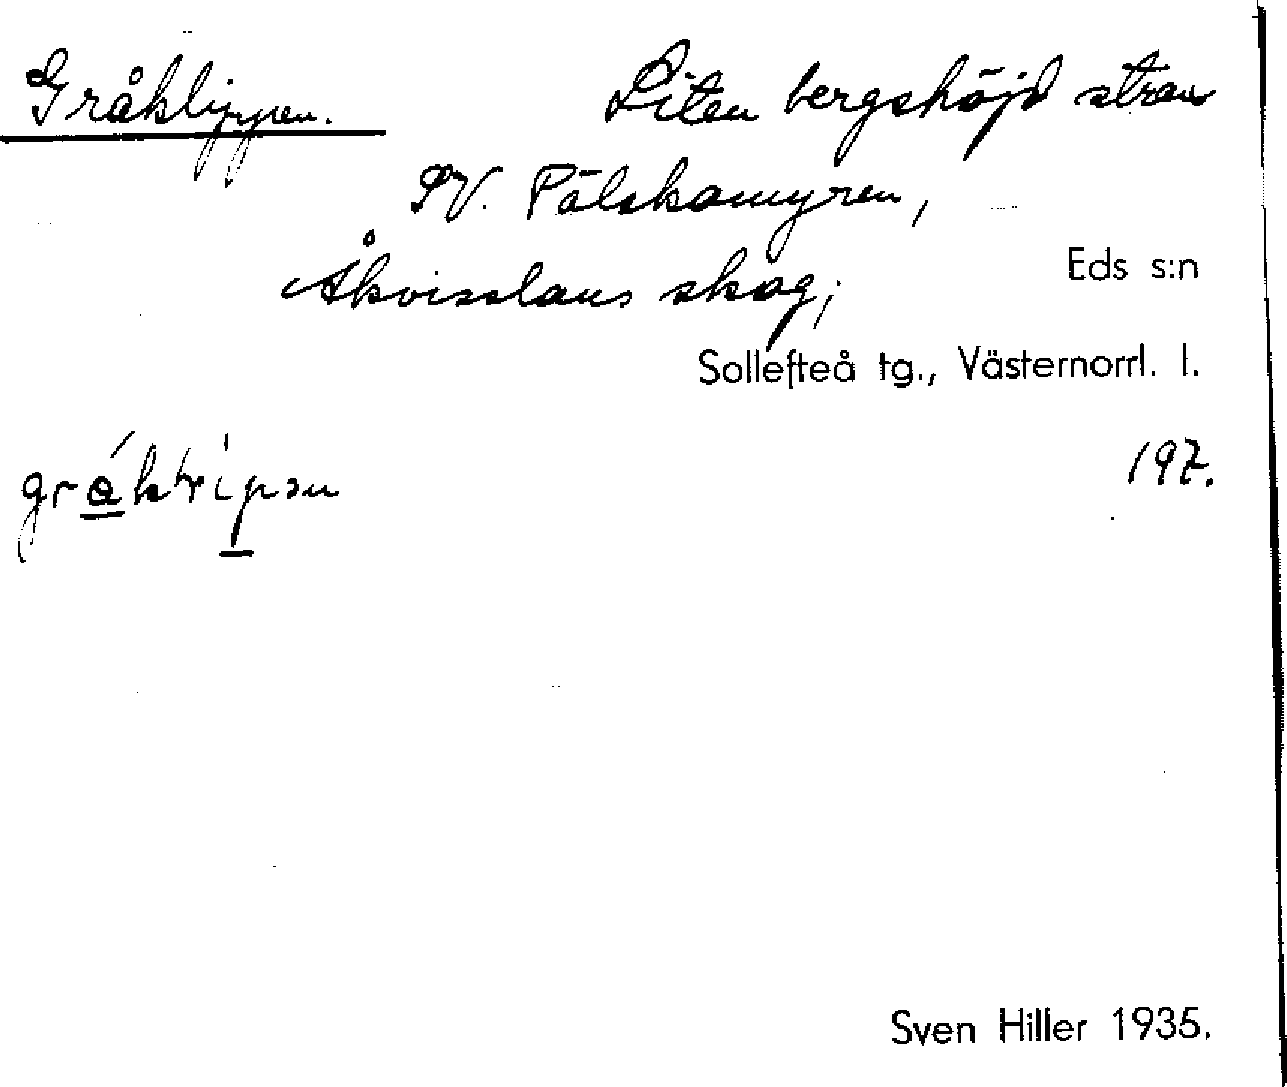 Gråklippen. Liten bergshöjd strax
SV. Pålskamyren,
Åkvisslans skog;
Eds s:n
Sollefteå tg., Västernorrl. l.
197.
Sven Hiller 1935.